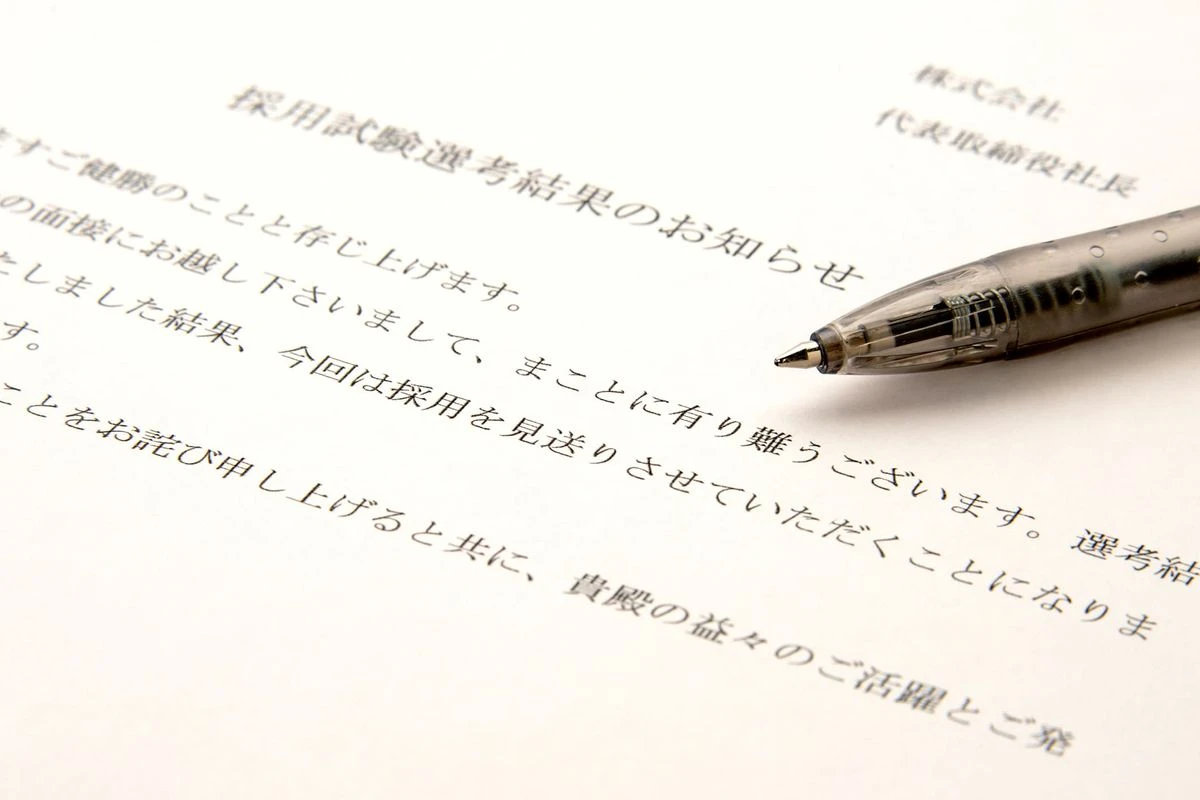 株式会社
代表取締役社長
採用試験選考結果のお知らせ
ますご健勝のことと存じ上げます。
の面接にお越し下さいまして、まことに有り難うございます。選考結
たしました結果、今回は採用を見送りさせていただくことになりま
す。
ことをお詫び申し上げると共に、貴殿の益々のご活躍とご発